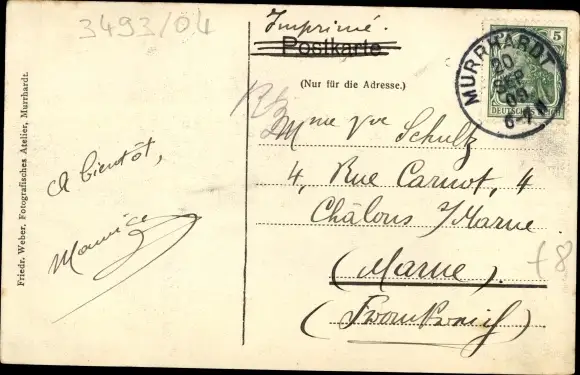 3493/04
Imprimé.
Postkarte
(Nur für die Adresse.)
5
DEUTSCHES REICH
MURRHARDT
20
SEP
05
6-7 N
Mme Vve Schultz
4, Rue Carnot, 4
Châlons s/Marne
(Marne)
(Frankreich)
+8
A bientôt,
Maurice
Friedr. Weber, Fotografisches Atelier, Murrhardt.